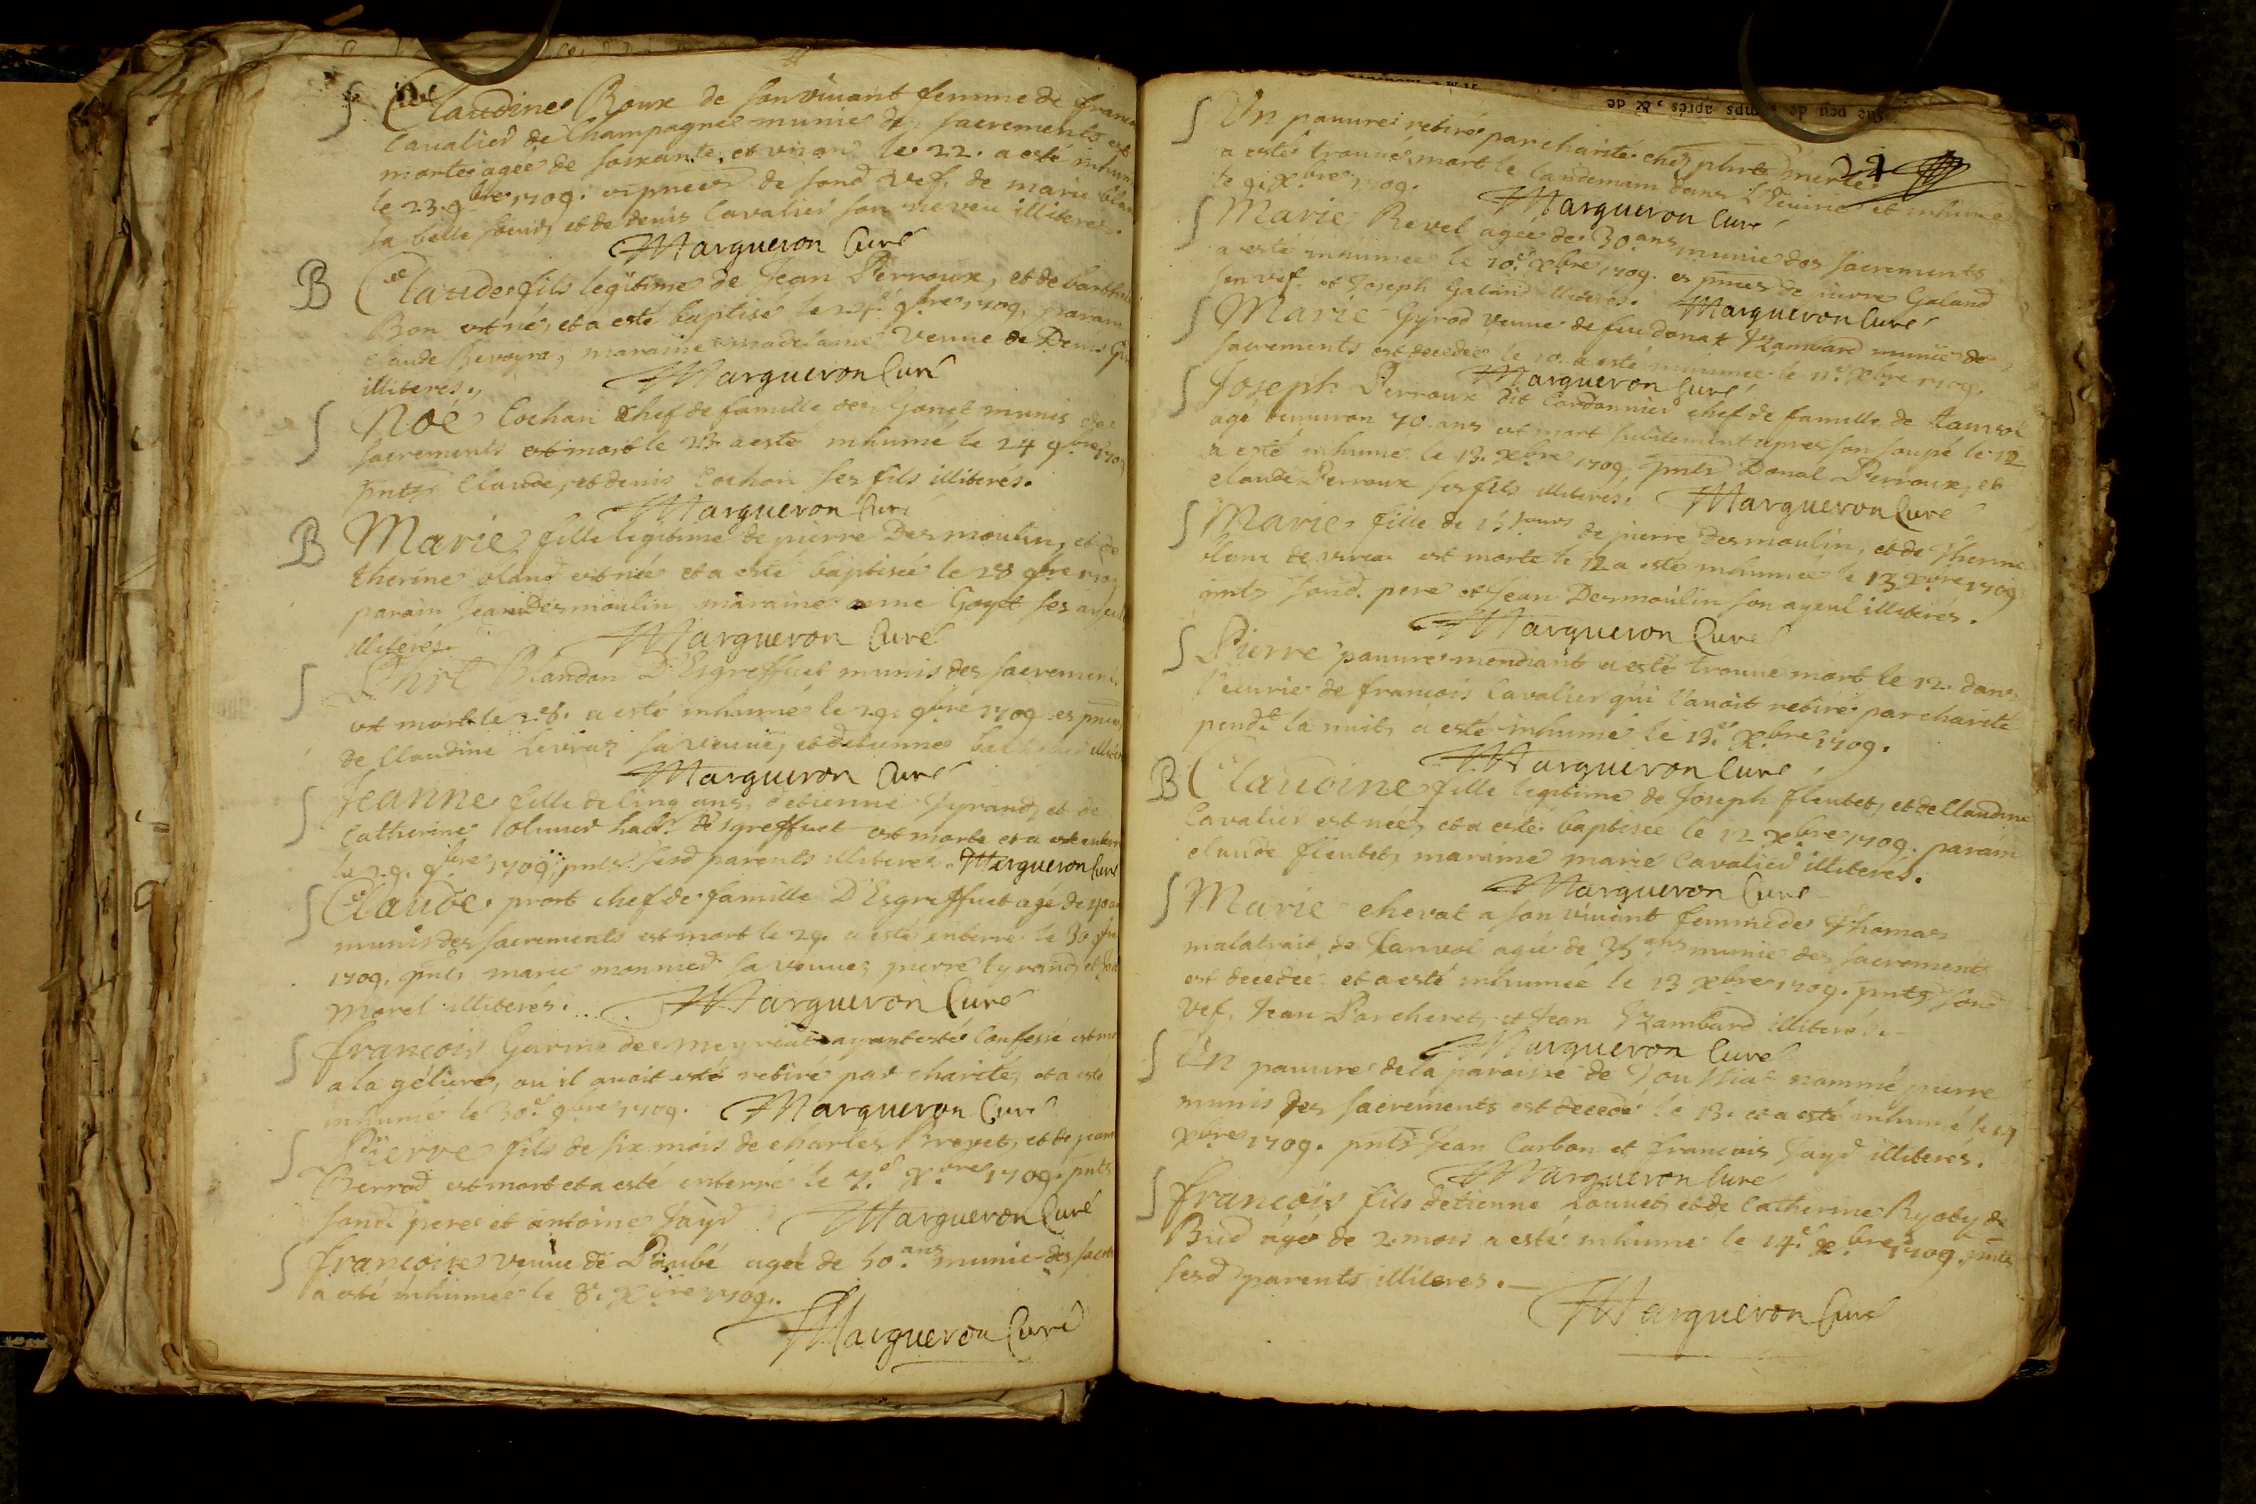 S Claudine Roux de son vivant femme de franc
Cavalier de Champagne munie des sacrements est
morte agée de soixante et un an le 22. a esté inhum
le 23. 9bre 1709. es pnces de sond vef. de marie blan
sa belle soeur, et de denis Cavalier son neveu illiteres.
Margueron Curé
B Claude fils legitime de Jean Perroux, et de barth
Bon est né, et a esté baptisé le 9bre 1709, parain
claude Revoyra, maraine madelaine veuve de Denis
illiteres.
Margueron Curé
S Noé Cochan chef de famille munis des
sacrements est mort le 23 a esté inhumé le 24 9bre 1709
pnts Claude, et denis Cochan ses fils illiterés.
Margueron Curé
B Marie fille legitime de pierre Desmoulin, et de
therine est née et a esté baptisée le 28 9bre 1709
parain Jean Desmoulin maraine anne Goyet ses
illiterés.
Margueron Curé
S Blandon D'Esgreffuet munis des sacrement
est mort le 28. a esté inhumé le 29. 9bre 1709 es pnces
de Claudine sa veuve, et detienne
Margueron Curé
S Jeanne fille de cinq ans, detienne Tyrand, et de
Catherine habt. Desgreffuet est morte et a esté
le 29. 9bre 1709, pnts sesd parents illiteres. Margueron Curé
S Claude prost chef de famille D'Esgreffuet agé de
munis des sacrements est mort le 29. a esté enterré le 30 9bre
1709. pnts marie sa veuve, pierre tyrand, et
Morel illiterés. Margueron Curé
S francois Garin de ayant esté Confessé est mo
a la géliere, ou il avoit esté retiré par charité, et a esté
inhumé le 30e 9bre 1709. Margueron Curé
S Pierre fils de six mois de charles Brevet, et de jeanne
Berrod est mort et a esté enterré le 7e Xbre 1709. pnts
sond. pere et antoine Jayd Margueron Curé
S francoise veuve de agée de 50. ans munie des sacre
a esté inhumée le 8. Xbre 1709.
Margueron Curé
24
S Un pauvre retiré par charité chez
a esté trouvé mort le landemain dans l'Ecurie et inhumé
le 9. Xbre 1709.
Margueron Curé
S Marie Revel agée de 30. ans munie des sacrements
a esté inhumée le 10e Xbre 1709. es pnces de pierre Galand
son vef. et Joseph Galand illiteres. Margueron Curé
S Marie Gyrod veuve de feu donat munie des
sacrements est decedée le 10. a esté inhumée le 11e Xbre 1709.
Margueron Curé
S Joseph Perroux dit Cordonnier chef de famille de
agé denviron 70. ans est mort subitement apres son soupé le 12
a esté inhumé le 13. Xbre 1709, pnts Donat Perroux, et
claude Perroux ses fils illiterés. Margueron Curé
S Marie fille de 15 jours de pierre desmoulin, et de
est morte le 12 a esté inhumée le 13 Xbre 1709
pnts sond. pere et Jean Desmoulin son ayeul illiterés.
Margueron Curé
S Pierre pauvre mendiant a esté trouvé mort le 12. dans
l'ecurie de francois Cavalier qui l'avoit retiré par charité
pendt. la nuit, a esté inhumé le 13e Xbre 1709.
Margueron Curé
B Claudine fille legitime de Joseph fleutet, et de Claudine
Cavalier est née, et a esté baptisée le 12 Xbre 1709. parain
claude fleutet, maraine marie Cavalier illiterés.
Margueron Curé
S Marie chevat a son vivant femme de Thomas
malatrait de agée de 35 ans munie des sacrements
est decedée et a esté inhumée le 13 Xbre 1709. pnts sond
vef. Jean Parcheret, et Jean illiteré.
Margueron Curé
S Un pauvre de la paroisse de nommé pierre
munis des sacrements est decedé le 13. et a esté inhumé le 14
Xbre 1709. pnts Jean Carbon et francois Jayd illiterés.
Margueron Curé
S francois fils detienne Louvet, et de Catherine de
agé de 2. mois a esté inhumé le 14e Xbre 1709, pnts
sesd parents illiteres.
Margueron Curé